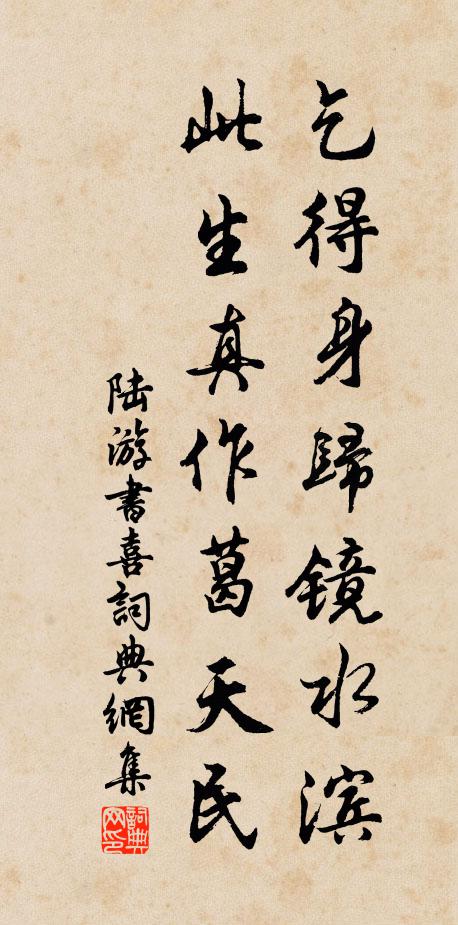 乞得身歸镜水滨
此生真作葛天民
陆游書喜詞典網集
詞典网印